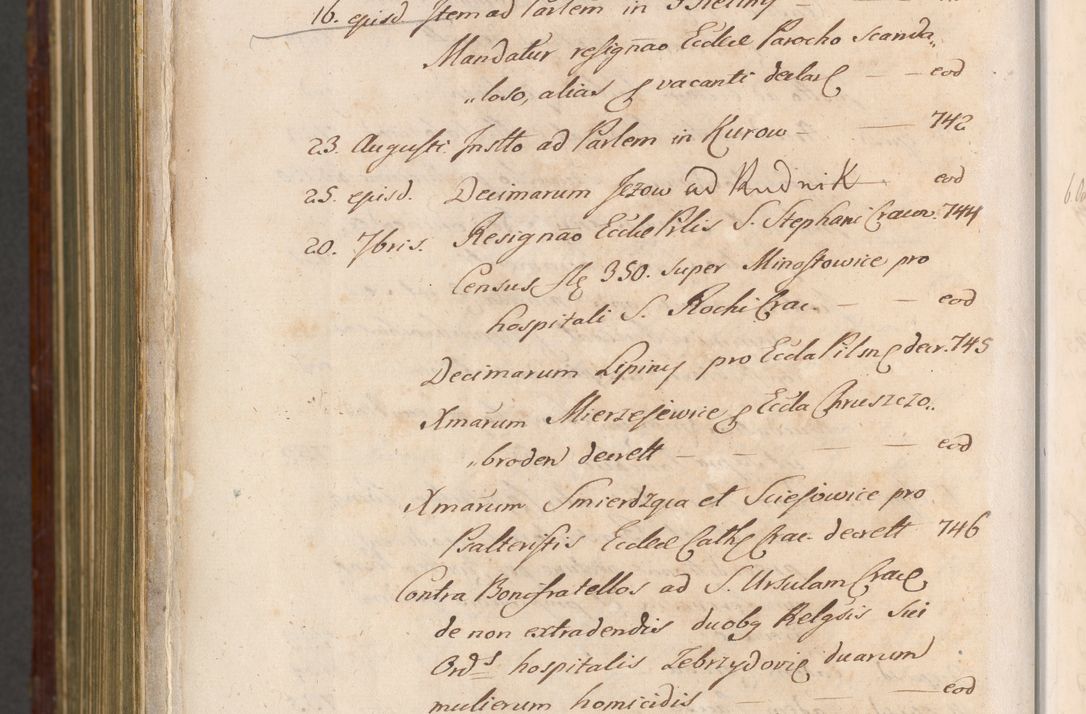 16. ejusd. Item ad Parlem in
Mandatur resignao Ecclae Parocho Scanda„
„loso, alias vacanti declar — — eod
23. Augusti. Instto ad Parlem in Kurow — — 742
25. ejusd. Decimarum Jezow ad Rudnik — eod
20. 7bris. Resignao Ecclae Plis S. Stephani Cracov. 744
Census fls 350. super Minostowice pro
hospitali S. Rochi Crac. — — eod
Decimarum Lipiny pro Eccla Pilsn decr. 745
Xmarum Mierzejewice Eccla Chruszczo„
„broden decrett — — — — — eod
Xmarum Smierdzqca et Sciejowice pro
Psalteristis Ecclae Cath Crac. decrett 746
Contra Bonifratellos ad S. Ursulam Crac,
de non extradendis duobq Relgsis sui
Ords hospitalis Zebrzydovic duarum
mulierum homicidis — — — eod